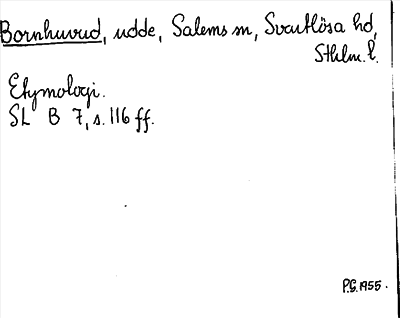 Bornhuvud, udde, Salems sn, Svartlösa hd,
Sthlm. l.
Etymologi.
SL B 7, s. 116 ff.
P.G. 1955.